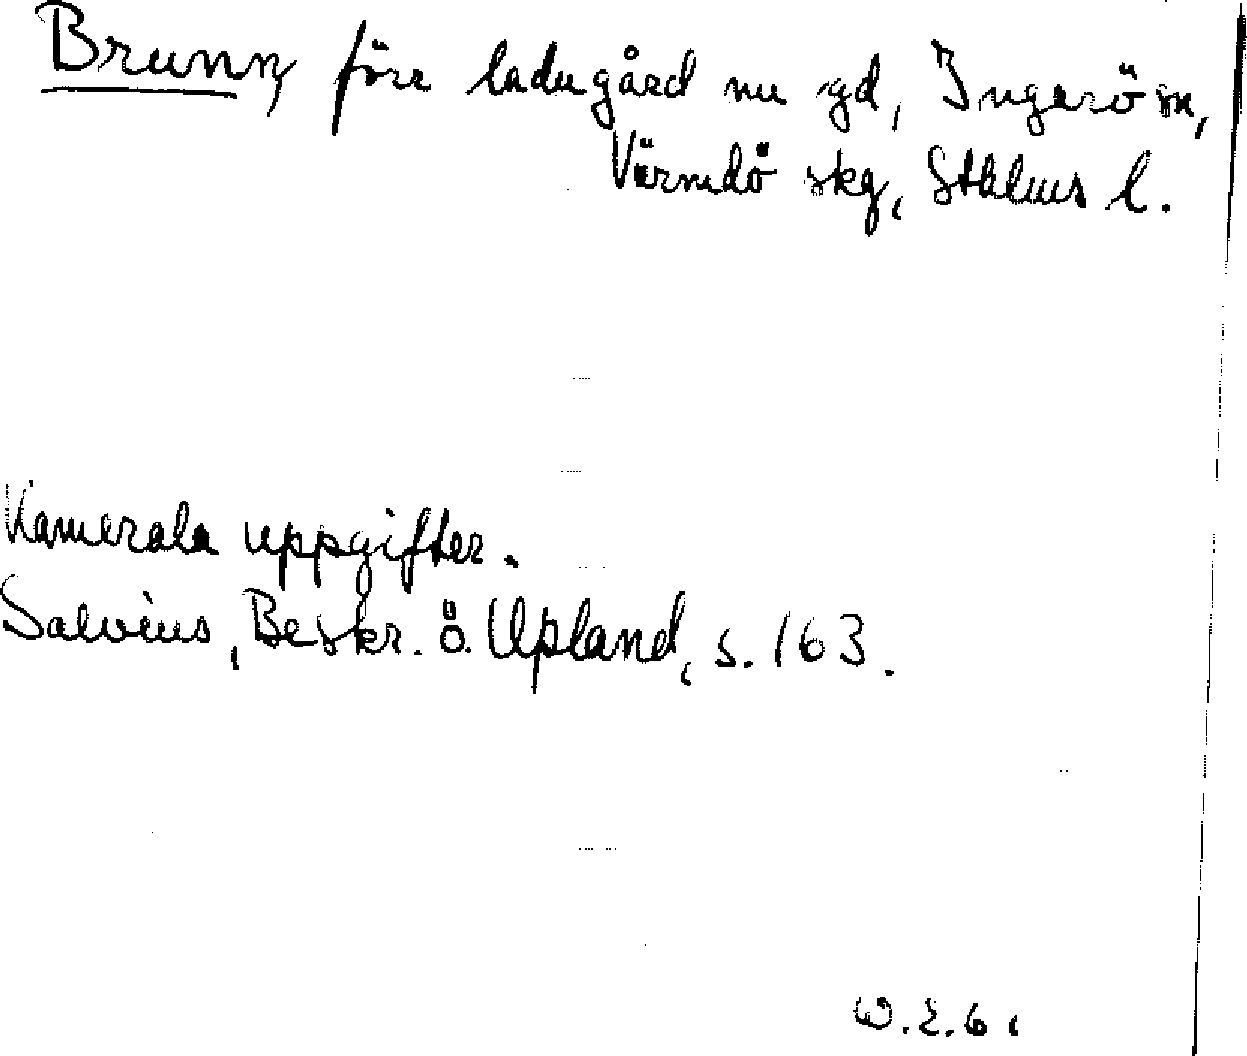 Brunn, förr ladugård nu gd, Ingarö sn,
Värmdö skg, Sthlms l.
Kamerala uppgifter.
Salvius, Beskr. ö. Upland, s. 163.